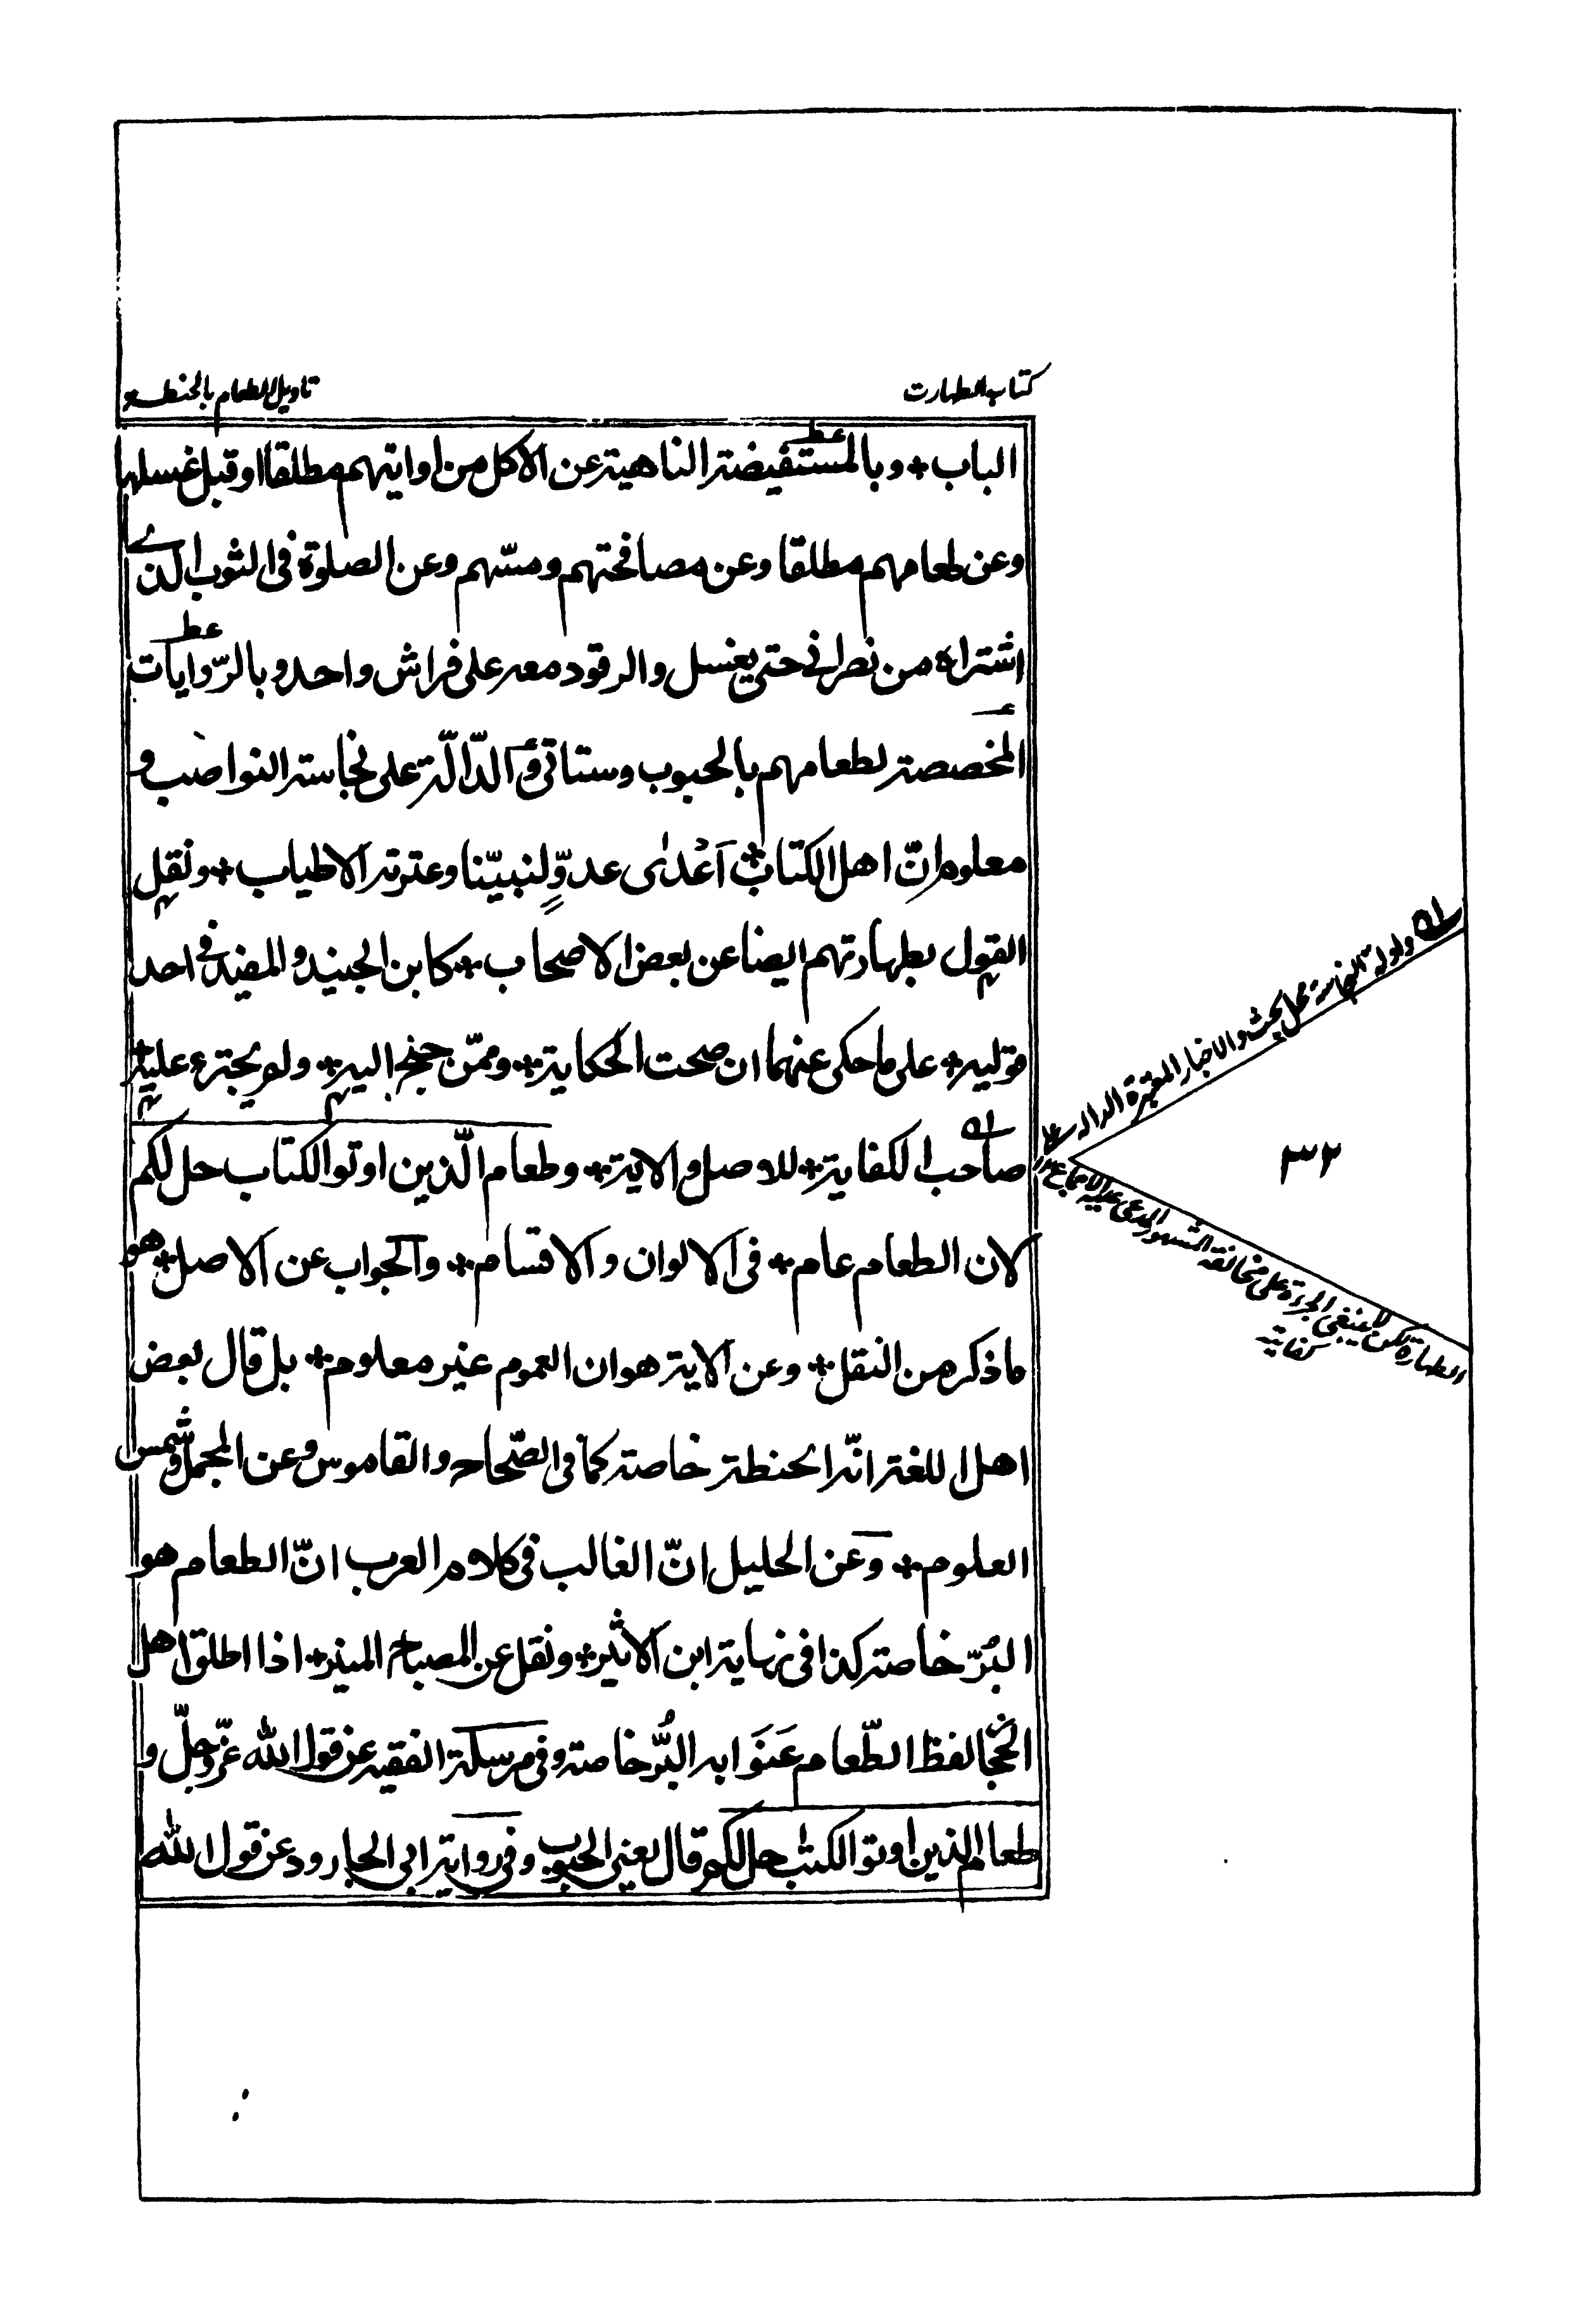 كتاب الطهارت
تاويل الطعام بالحنطة
الباب * وبالمستفيضة الناهية عن الاكل من اوانيهم مطلقا او قبل غسلها
وعن طعامهم مطلقا وعن مصافحتهم ومسّهم وعن الصلوة فى الثوب الذے
اشتراه من نصرانى حتى يغسل والرقود معه على فراش واحد وبالرّوايات
المخصصة لطعامهم بالحبوب وستاتى والدّالّة على نجاسة النواصب و
معلوم انّ اهل الكتاب * اَعْدٰى عدوٍّ لنبيّنا وعترته الاطياب * ونقل
القول بطهارتهم ايضا عن بعض الاصحاب * كابن الجنيد والمفيد فى احد
قوليه * على ما حكى عنهما ان صحت الحكاية * وممّن جنح اليه * ولم يجترء عليه *
صاحب الكفاية * للاصل والاية * وطعام الّذين اوتوا الكتاب حل لكم
لان الطعام عام * فى الالوان والاقسام * والجواب عن الاصل * هو
ما ذكر من النقل * وعن الاية هو ان العموم غير معلوم * بل قال بعض
اهل اللغة انّه الحنطة خاصة كما فى الصّحاح والقاموس وعن المجمل وشمس
العلوم * وعن الخليل انّ الغالب فى كلام العرب انّ الطعام هو
البُرّ خاصة كذا فى نهاية ابن الاثير * ونقل عن المصباح المنير * اذا اطلق اهل
الحجا لفظ الطّعام عَنَوا به البُرَّ خاصة وفى مرسلة الفقيه عن قول الله عزّ وجلّ و
طعام الذين اوتوا الكتٰب حل لكم قال يعنى الحبوب وفى رواية ابى الجارود عن قول الله
ولولة النجاسة محل بحث والاخبار المعتبرة الدالة على
٣٢
الطهارة لكن لا ينبغى الجرءة على مخالفة المشهور المدعى عليه الاجماع
كفاية